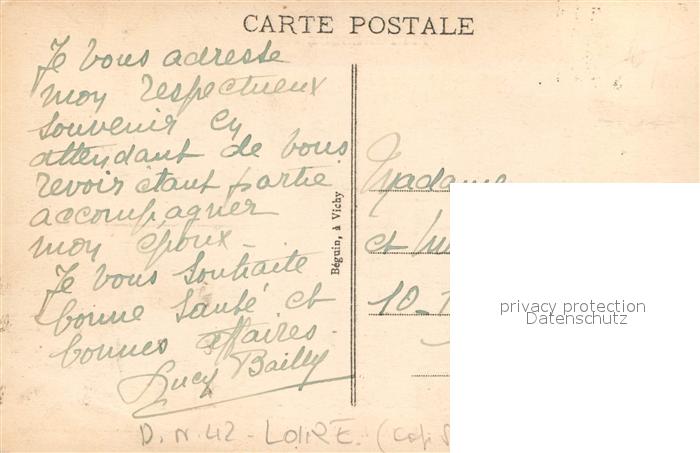 CARTE POSTALE
Je vous adresse
mon respectueux
souvenir en
attendant de vous
revoir étant partie
accompagner
mon époux -
Je vous souhaite
bonne santé et
bonnes affaires.
Lucy Bailly
Béguin, à Vichy
Madame
et
10-
D. N. 42 - LOIRE. (
privacy protection
Datenschutz